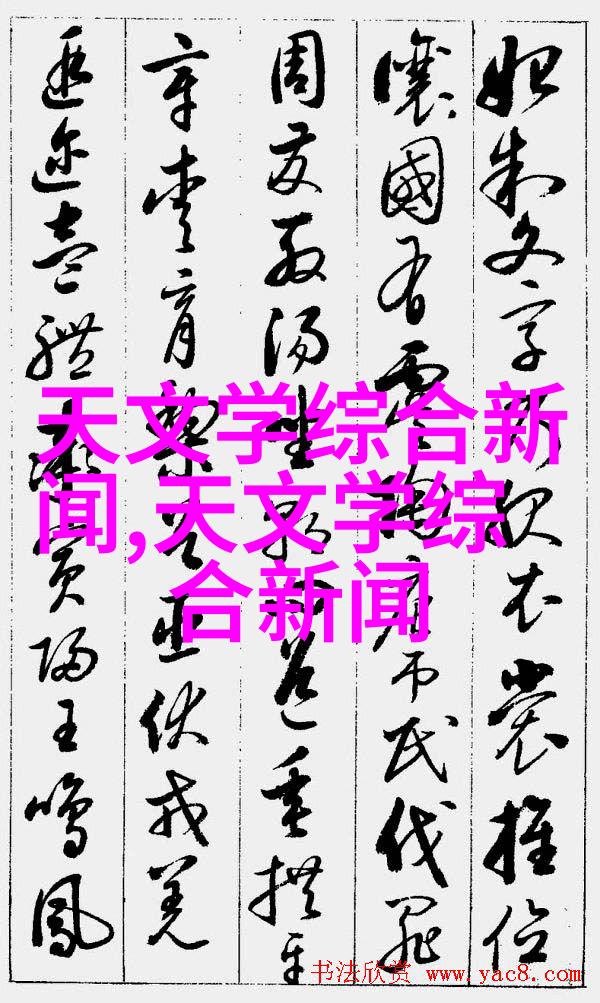 始制文字乃服衣裳推位
讓國有虞陶唐吊民伐罪
周發殷湯坐朝問道垂拱平
章愛育黎首臣伏戎羌
遐迩壹體率賓歸王鳴鳳
天文学综合新
闻,天文学综
合新闻
书法欣赏 www.yac8.com